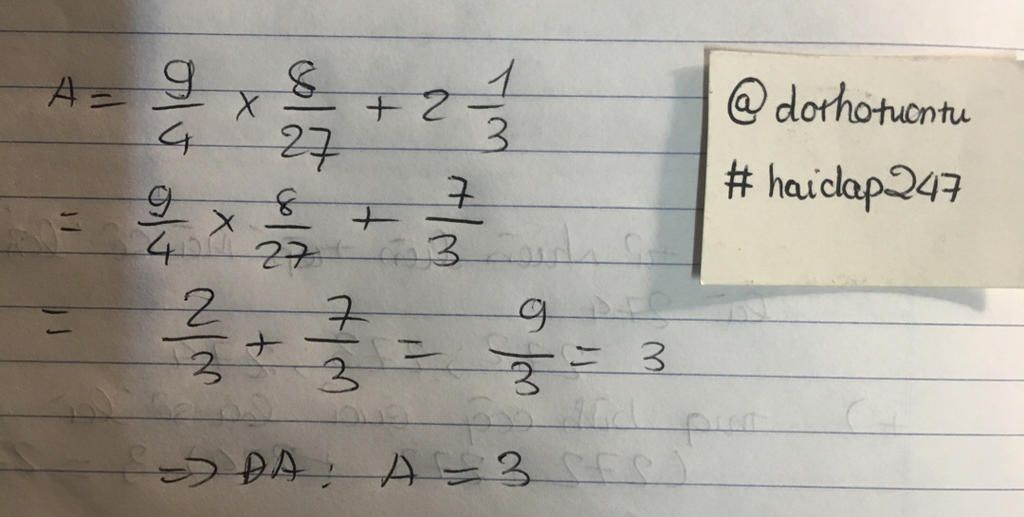 A = 9/4 × 8/27 + 2 1/3
= 9/4 × 8/27 + 7/3
= 2/3 + 7/3 = 9/3 = 3
=> ĐA: A = 3
@dothotuontu
#haidap247